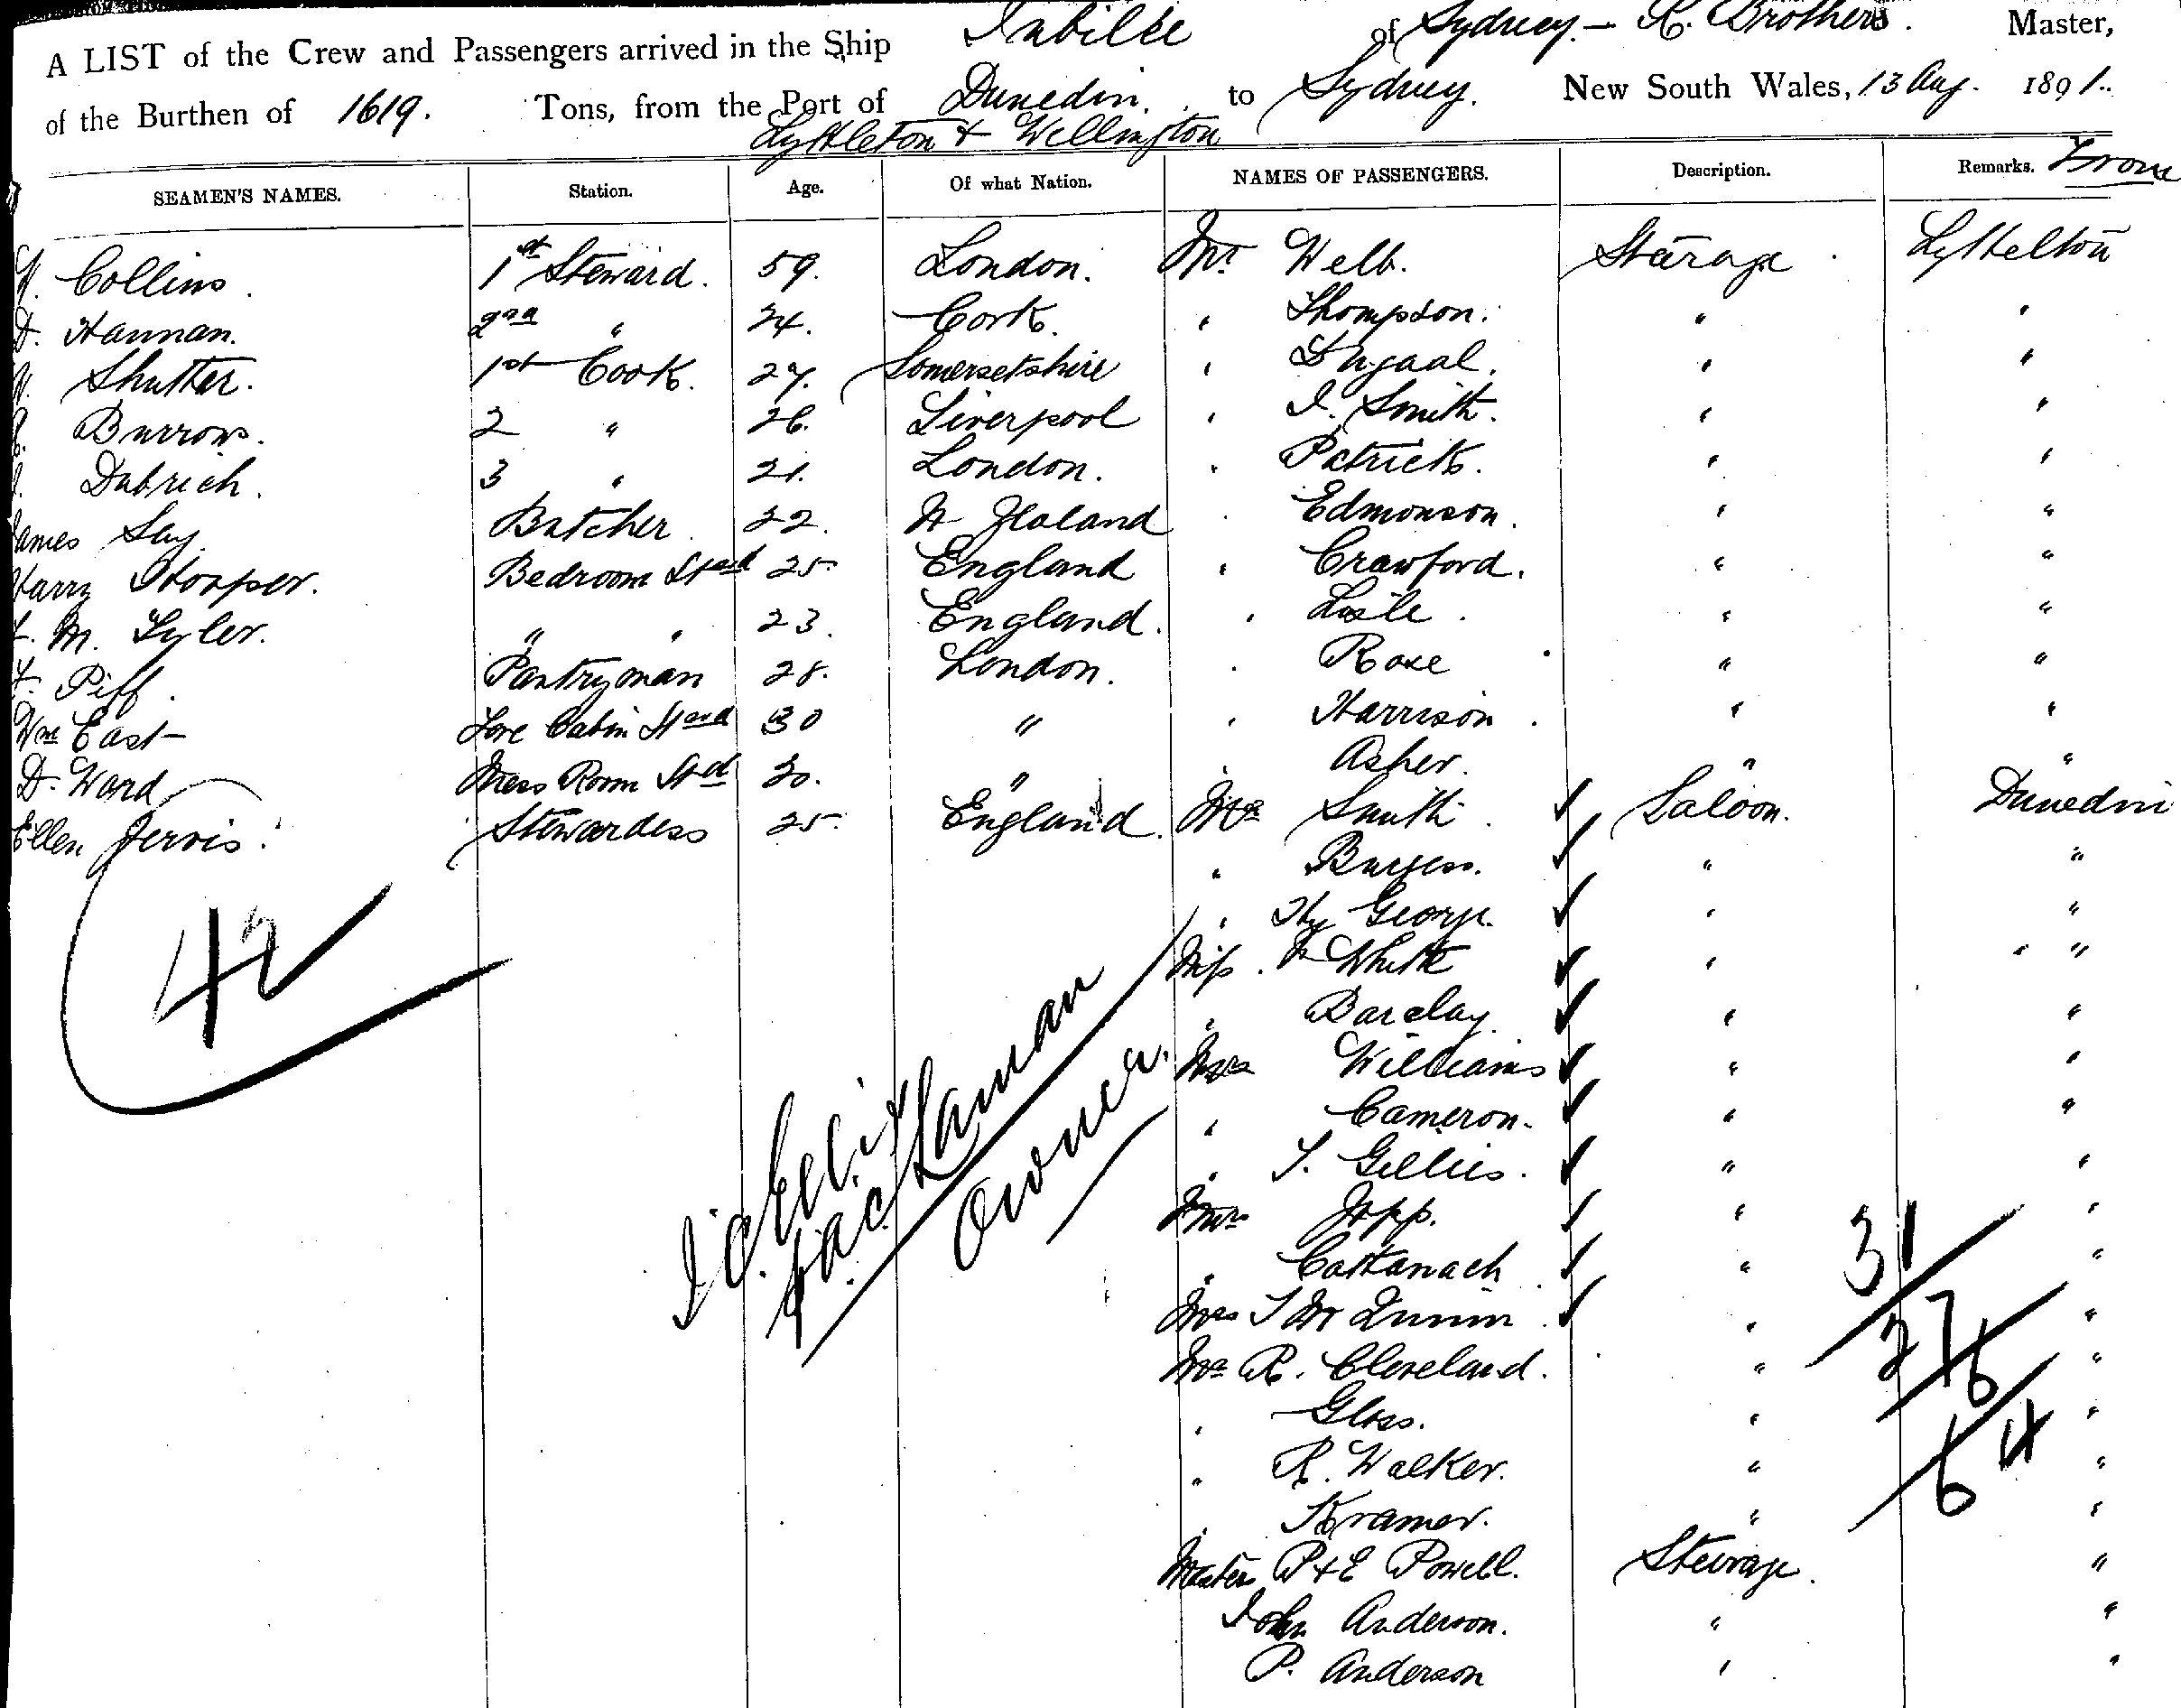 A LIST of the Crew and Passengers arrived in the Ship Jubilee of Sydney. - R. Brothers. Master,
of the Burthen of 1619. Tons, from the Port of Dunedin. to Sydney. New South Wales, 13 Aug. 1891.
Lyttleton & Wellington
SEAMEN'S NAMES. Station. Age. Of what Nation. NAMES OF PASSENGERS. Description. Remarks. From
Collins. 1st Steward. 59. London. Mr Webb. Steerage. Lyttelton
Hannan. 2nd " 24. Cork. " Thompson. " "
Shutter. 1st Cook. 27. Somersetshire " " "
Burrows. 2 " 26. Liverpool " J. Smith. " "
Dubrich. 3 " 21. London. " Patrick. " "
James Say. Butcher 22. N Zealand " Edmonson. " "
Harry Hooper. Bedroom Std 25. England " Crawford. " "
M. Tyler. " " 23. England. " Lisle. " "
F. Piff. Pantryman 28. London. " Rose " "
Wm East Fore Cabin Std 30 " " Harrison. " "
D. Ward Mess Room Std 30. " " Asher. " "
Ellen Jervis. Stewardess 25. England. Mr Smith. ✓ Saloon. Dunedin
" Burgess. ✓ " "
" Hy George. ✓ " "
42
Miss White ✓ " "
" Barclay. ✓ " "
Mrs Williams ✓ " "
" Cameron. ✓ " "
" T. Gillies. ✓ " "
Mrs Jopp. ✓ " "
" Cattanach ✓ " "
Owner.
31
Mrs ✓ " "
Mr R. Cleveland. " "
276
" Gloss. " "
64
" R. Walker. " "
" Kramer. " "
Masters P & E Powell. Steerage. "
John Anderson. " "
P. Anderson " "